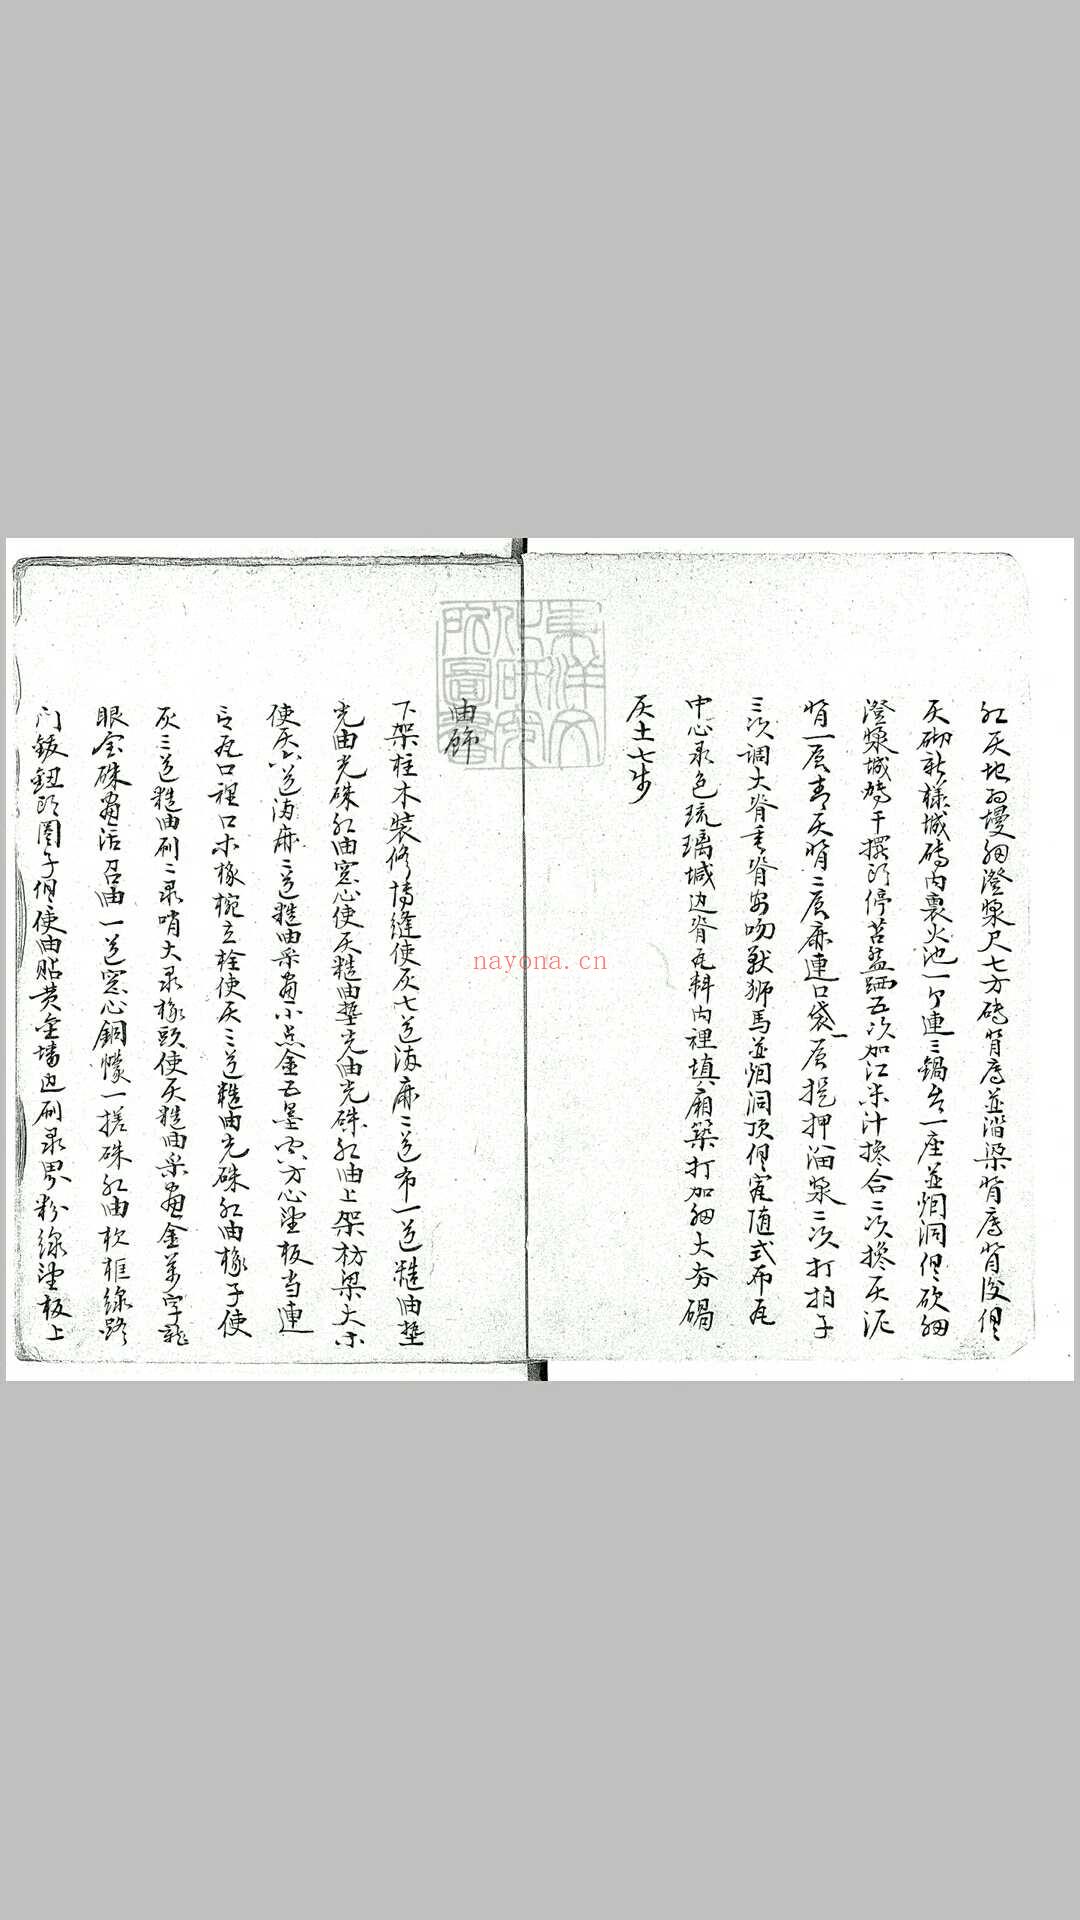 红灰地面墁細澄漿尺七方磚背底並溚梁背底背後俱
灰砌新樣城磚内裏火池一个連三鍋台一座並烟洞俱砍細
澄漿城磚干摆到停苫盖晒五次加江米汁搀合二次搀灰泥
背一层青灰背二层麻連口袋一层捉押溜漿二次打拍子
三次调大脊垂脊安吻獸狮馬並烟洞顶俱宽随式布瓦
中心录色琉璃堿边脊瓦料内裡填廂築打加細大夯碣
灰土七步
油飾
下架柱木装修博縫使灰七道海麻二道布一道糙油墊
光油光硃红油窓心使灰糙油墊光油光硃红油上架枋梁大木
使灰六道海麻二道糙油采画小点金五墨空方心望板当連
言瓦口裡口木椽椀立栓使灰三道糙油光硃红油椽子使
灰三道糙油刷二录哨大录椽頭使灰糙油采画金萬字龍
眼金硃画活召油一道窓心銅幪一搓硃红油栨框線路
门钹鈕頭圈子俱使油贴黄金墙边刷录界粉線望板上
東洋文化研究所圖書
nayona.cn